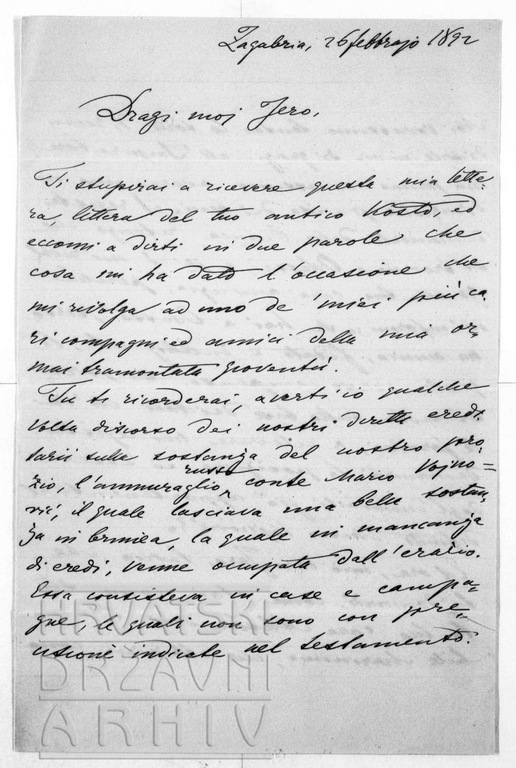 Zagabria, 26 febbrajo 1892
Dragi moj Jero,
Ti stupirai a ricevere questa mia lette-
ra, lettera del tuo antico Kosto, ed
eccomi a dirti in due parole che
cosa mi ha dato l'occasione che
mi rivolga ad uno de' miei più ca-
ri compagni ed amici della mia or-
mai tramontata gioventù.
Tu ti ricorderai, averti io qualche
volta discorso dei nostri diritti eredi-
tarii sulla sostanza del nostro pro-
zio, l'ammiraglio russo conte Mario Vojno-
vić, il quale lasciava una bella sostan-
za in Crimea, la quale in mancanza
di eredi, venne occupata dall'erario.
Essa consisteva in case e campa-
gne, le quali non sono con pre-
cisione indicate nel testamento.
HRVATSKI
DRŽAVNI
ARHIV